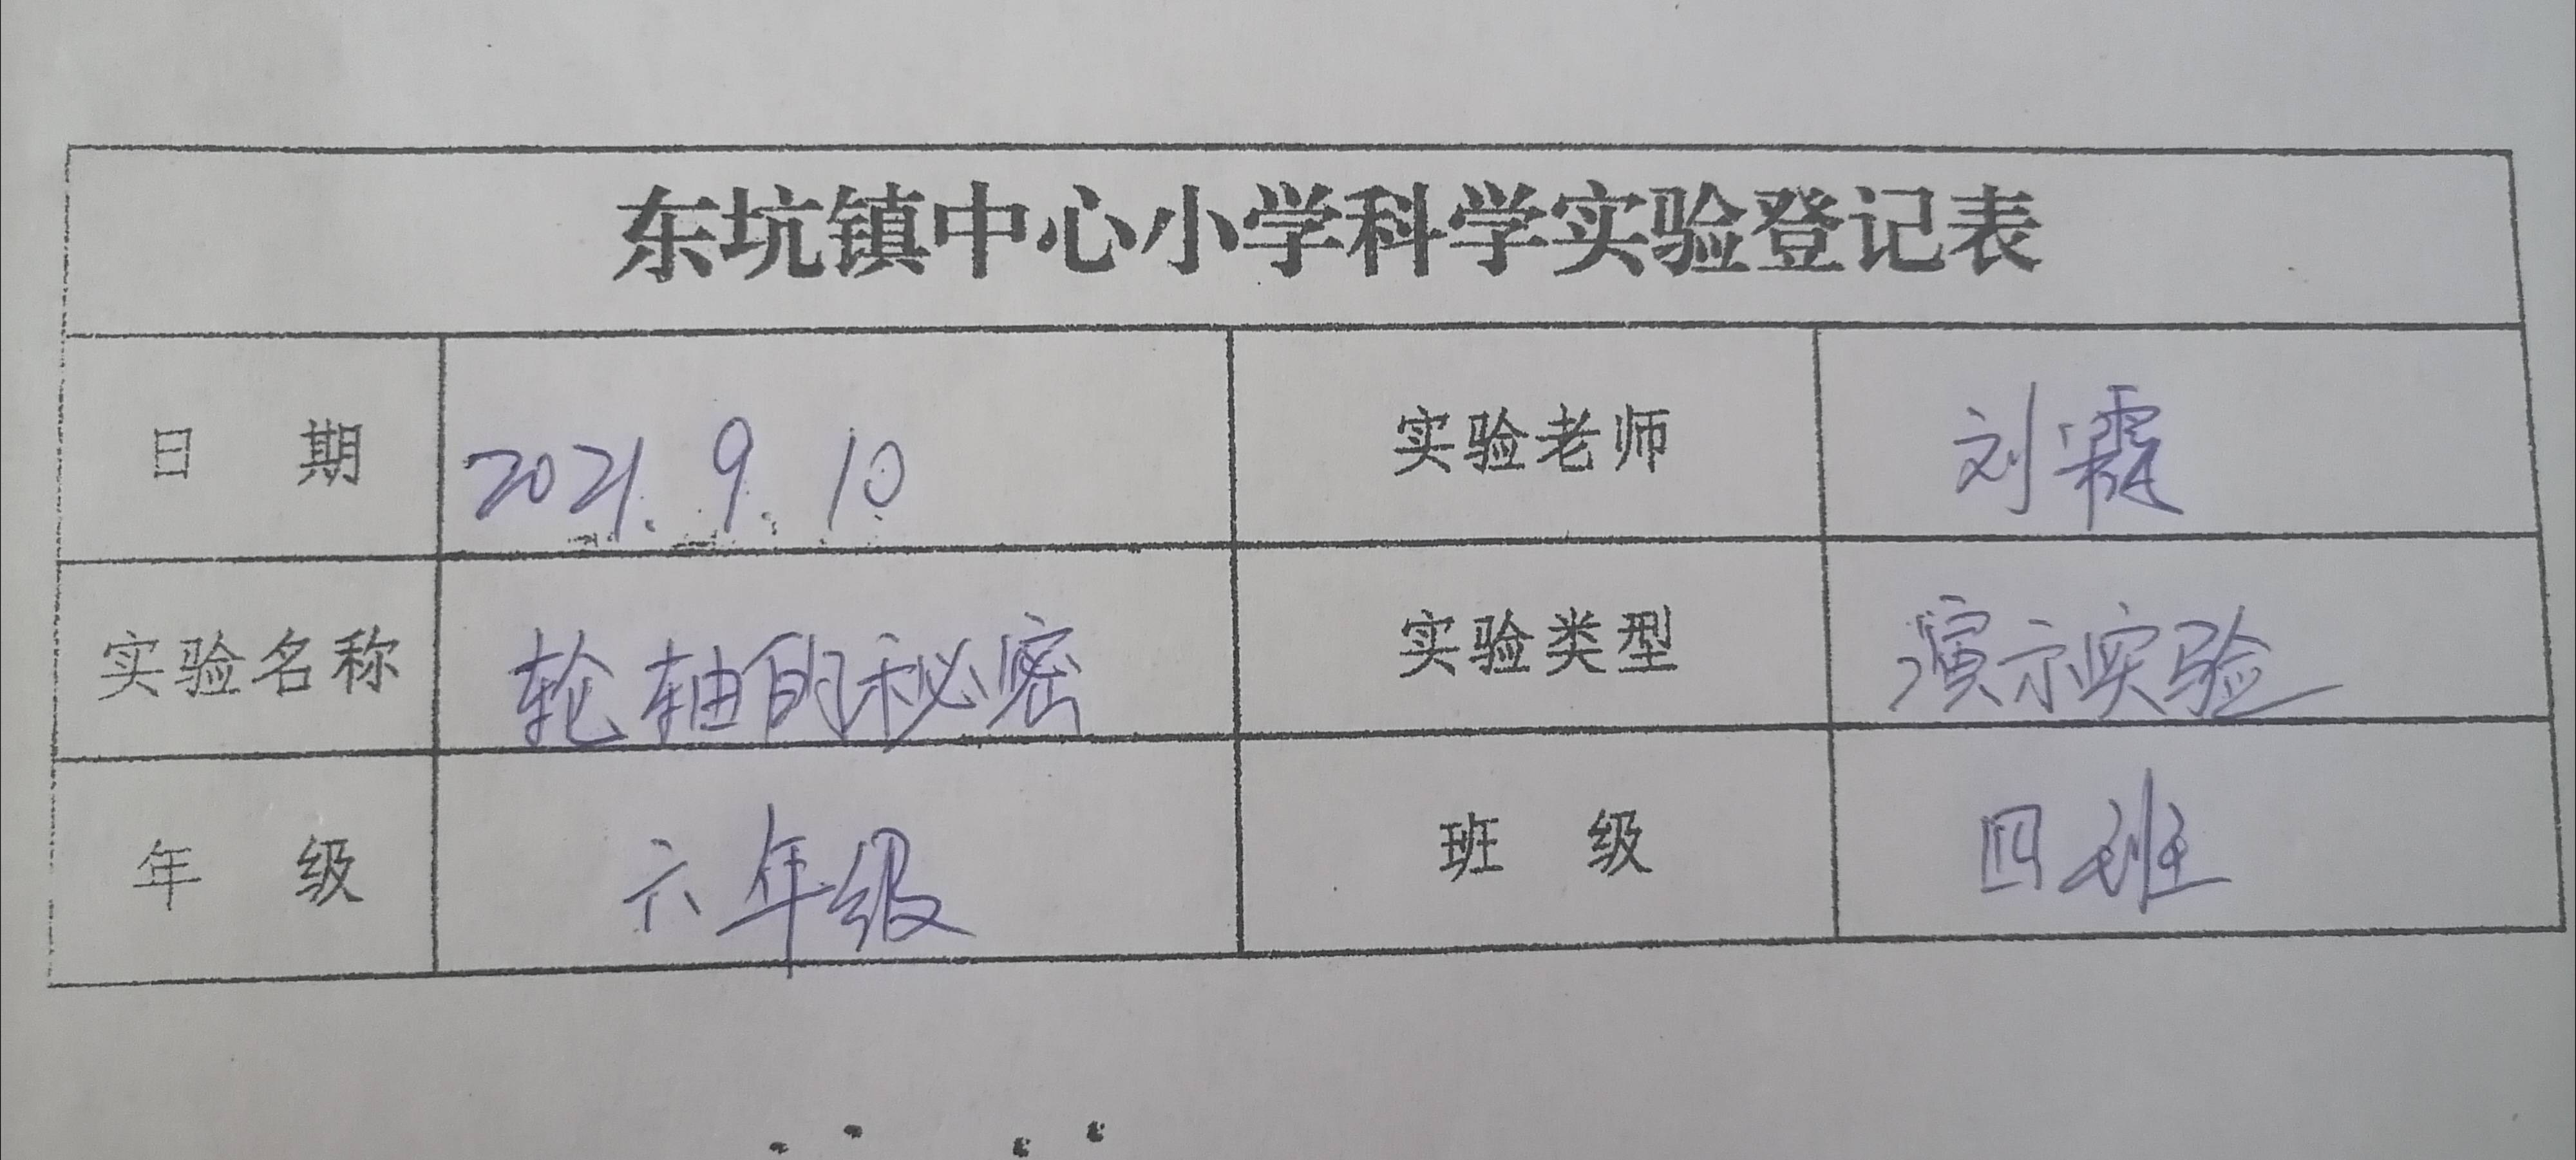 东坑镇中心小学科学实验登记表
日 期 2021.9.10 实验老师 刘霞
实验名称 轮轴的秘密 实验类型 演示实验
年 级 六年级 班 级 四班